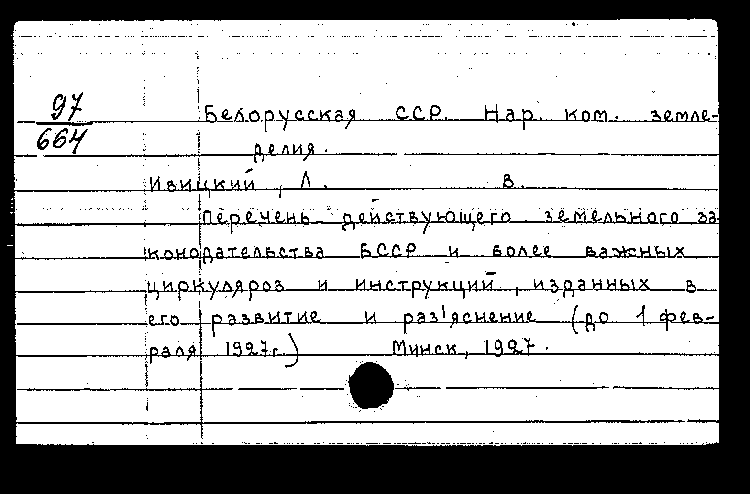 97
664
Белорусская ССР. Нар. ком. земле-
делия.
Ивицкий, Л. В.
Перечень действующего земельного за
конодательства БССР и более важных
циркуляров и инструкций, изданных в
его развитие и раз'яснение (до 1 фев-
раля 1927г.) Минск, 1927.